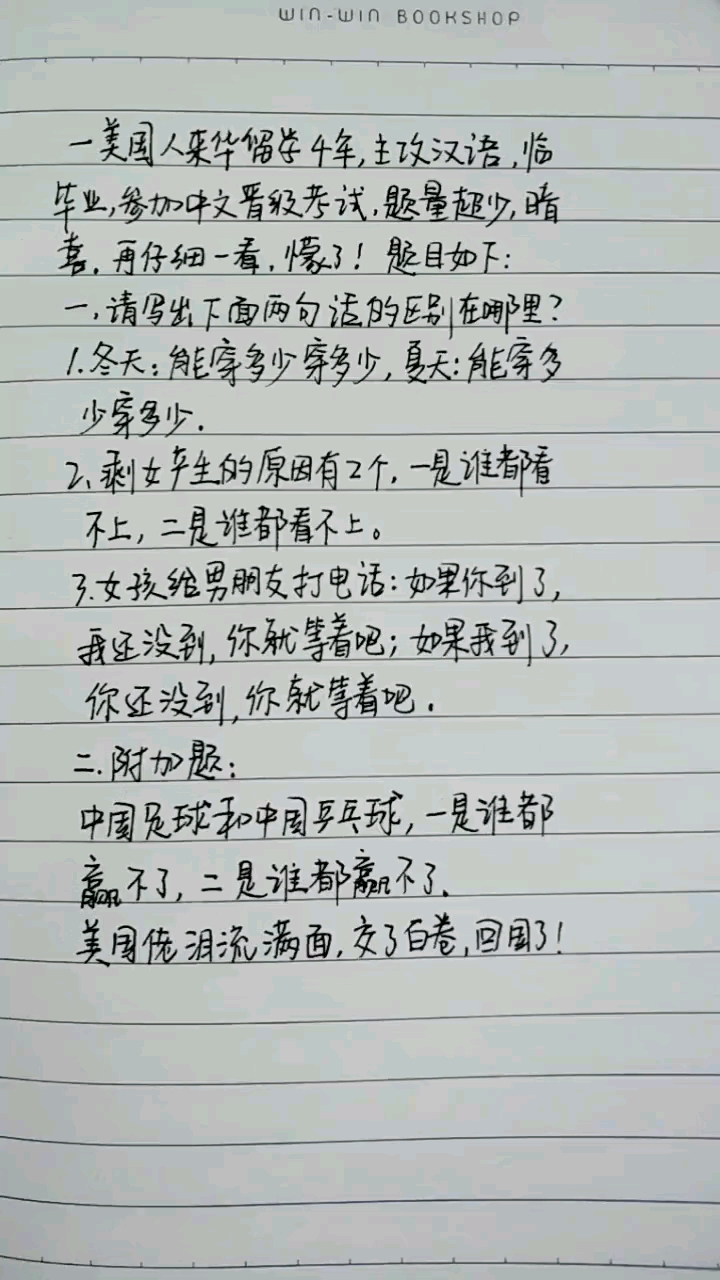 WIN-WIN BOOKSHOP
一美国人来华留学4年,主攻汉语,临
毕业,参加中文晋级考试,题量超少,暗
喜,再仔细一看,懵了!题目如下:
一,请写出下面两句话的区别在哪里?
1.冬天:能穿多少穿多少,夏天:能穿多
少穿多少.
2、剩女产生的原因有2个,一是谁都看
不上,二是谁都看不上。
3.女孩给男朋友打电话:如果你到了,
我还没到,你就等着吧;如果我到了,
你还没到,你就等着吧.
二.附加题:
中国足球和中国乒乓球,一是谁都
赢不了,二是谁都赢不了.
美国佬泪流满面,交了白卷,回国了!